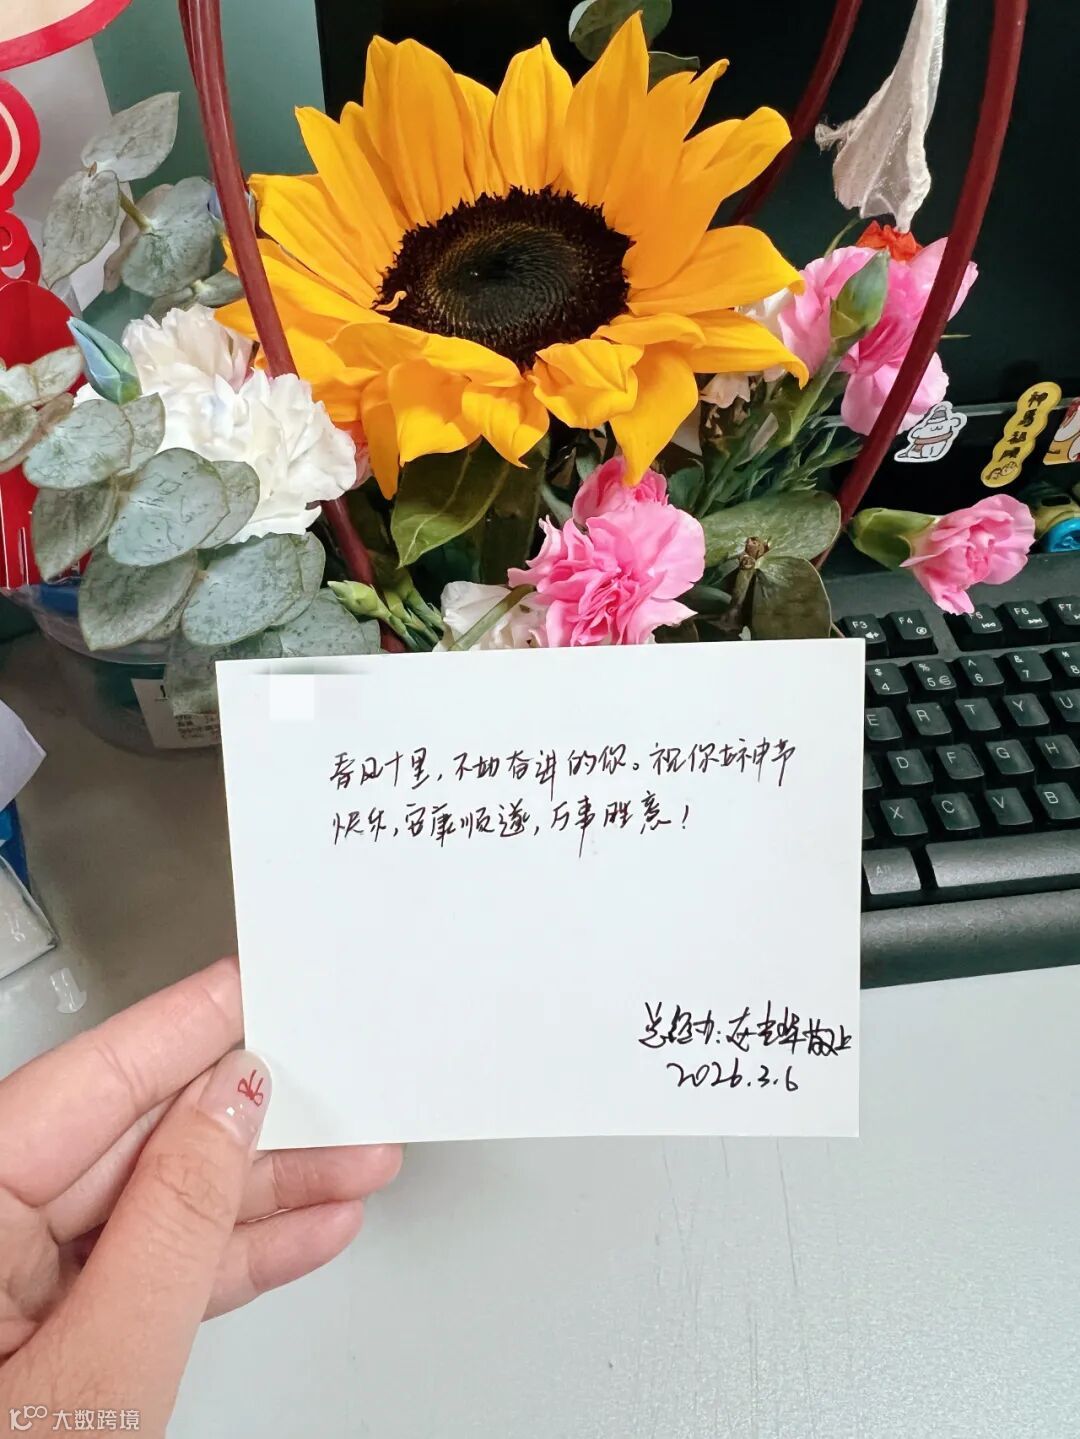 春风十里，不如奋进的你。祝你女神节
快乐，安康顺遂，万事胜意！
总经办：
敬上
2026.3.6
神马福
F3
F4
F5
F6
F7
$
4
%
5€
^
6
&
7
E
R
T
Y
U
D
F
G
H
X
C
V
B
Alt
大数跨境